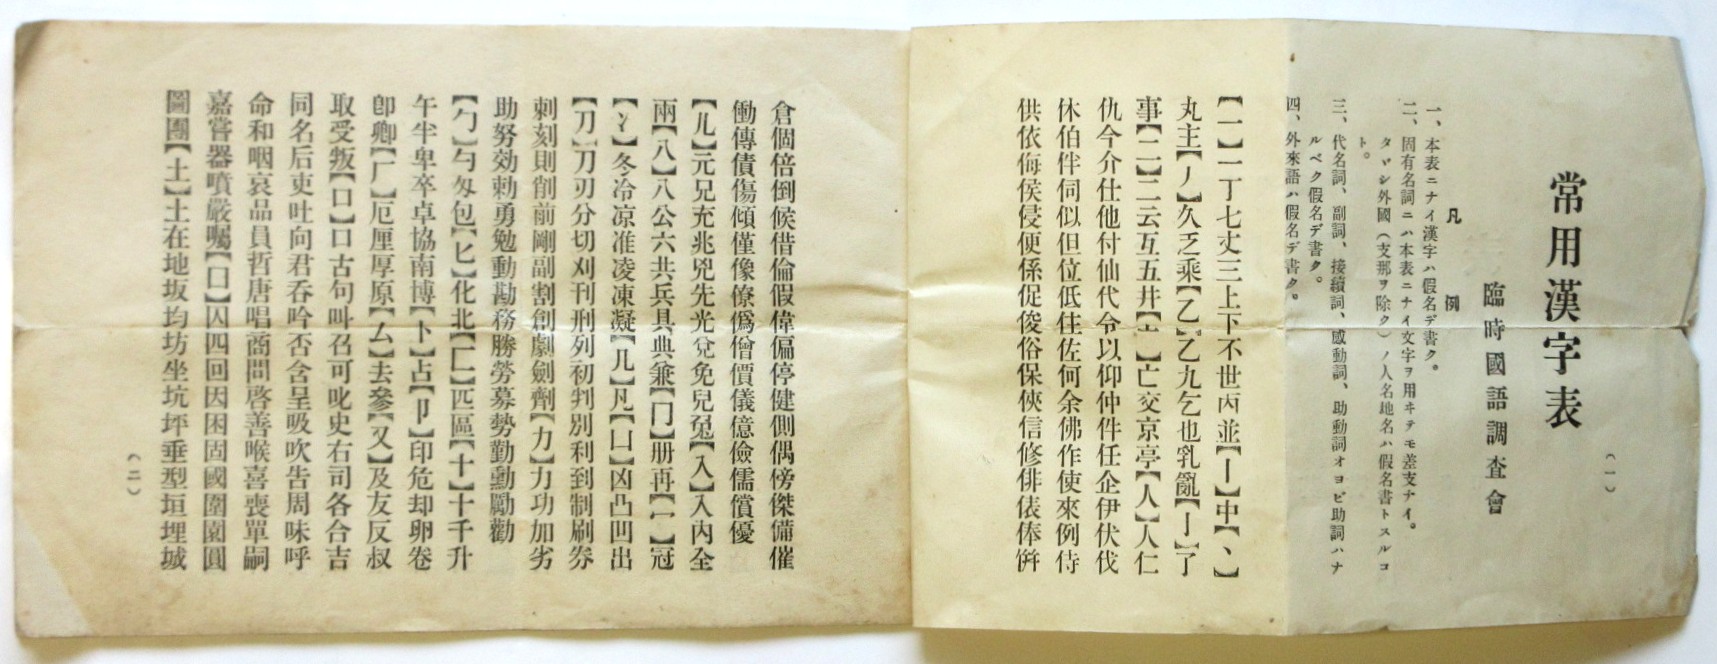 (一)
常用漢字表
臨時國語調査會
凡例
一、本表ニナイ漢字ハ假名デ書ク。
二、固有名詞ニハ本表ニナイ文字ヲ用ヰテモ差支ナイ。
タヾシ外國(支那ヲ除ク)ノ人名地名ハ假名書トスルコ
ト。
三、代名詞、副詞、接續詞、感動詞、助動詞オヨビ助詞ハナ
ルベク假名デ書ク。
四、外來語ハ假名デ書ク。
【一】一丁七丈三上下不世丙並【丨】中【丶】
丸主【丿】久乏乘【乙】乙九乞也乳亂【亅】了
事【二】二云互五井【亠】亡交京亭【人】人仁
仇今介仕他付仙代令以仰仲件任企伊伏伐
休伯伴伺似但位低住佐何余佛作使來例侍
供依侮侯侵便係促俊俗保俠信修俳俵俸倂
倉個倍倒候借倫假偉偏停健側偶傍傑備催
働傳債傷傾僅像僚僞僧價儀億儉儒償優
【儿】元兄充兆兇先光兌免兒兔【入】入內全
兩【八】八公六共兵具典兼【冂】册再【冖】冠
【冫】冬冷凉准凌凍凝【几】凡【凵】凶凸凹出
【刀】刀刃分切刈刊刑列初判別利到制刷券
刺刻則削前剛副割創劇劍劑【力】力功加劣
助努効勅勇勉動勘務勝勞募勢勤勳勵勸
【勹】勺匁包【匕】化北【匚】匹區【十】十千升
午半卑卒卓協南博【卜】占【卩】印危却卵卷
卽卿【厂】厄厘厚原【厶】去參【又】及友反叔
取受叛【口】口古句叫召可叱史右司各合吉
同名后吏吐向君吞吟否含呈吸吹告周味呼
命和咽哀品員哲唐唱商問啓善喉喜喪單嗣
嘉嘗器噴嚴囑【囗】囚四回因困固國圍園圓
圖團【土】土在地坂均坊坐坑坪垂型垣埋城
(二)